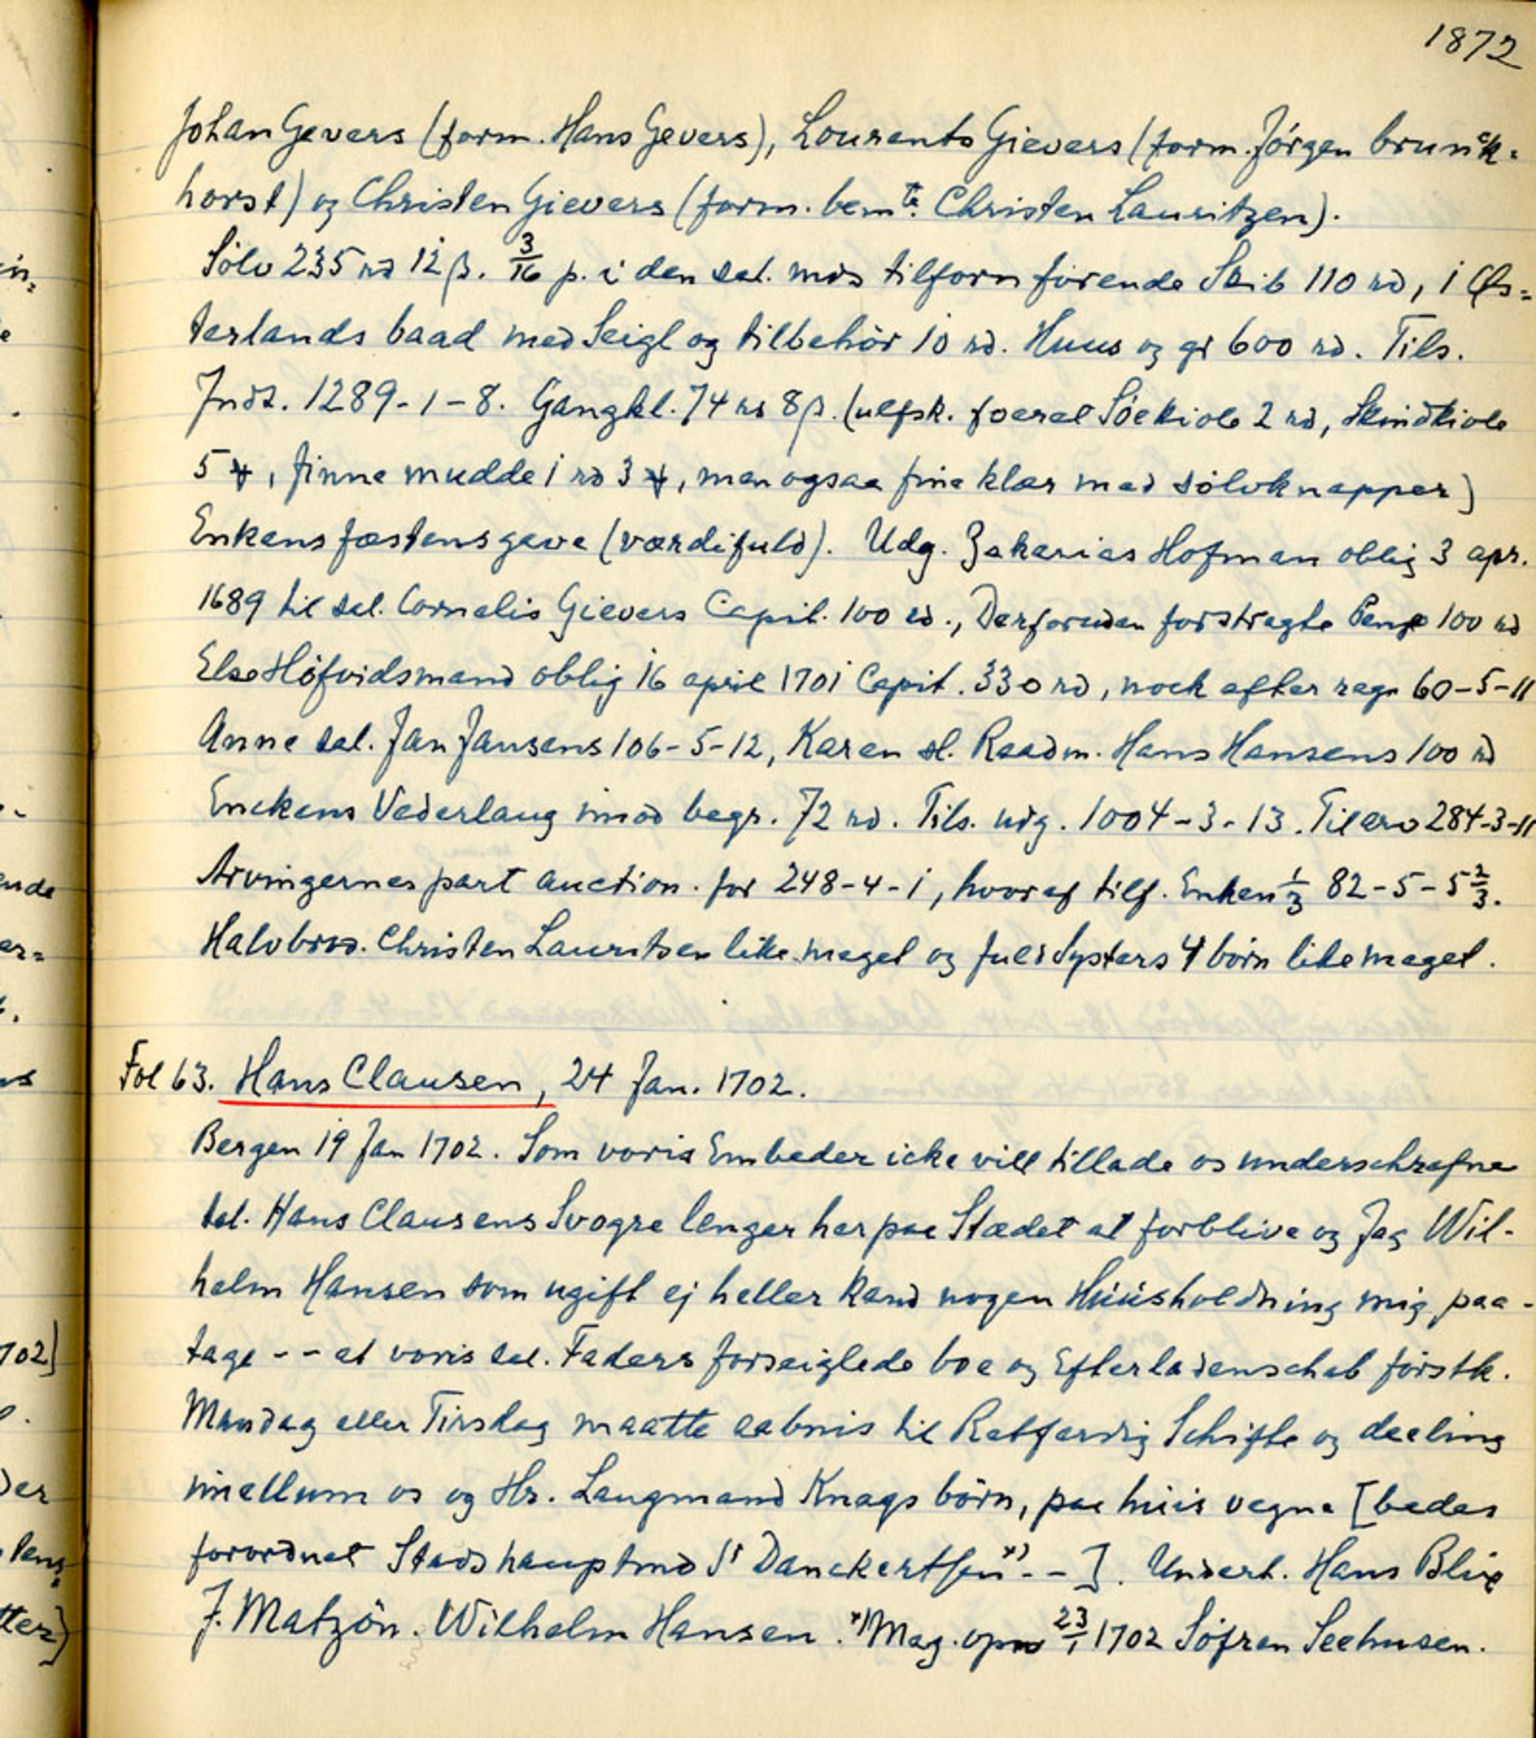 1872
Johan Gevers (form. Hans Gevers), Lourents Gievers (form. Jørgen brunck-
horst) og Christen Gievers (form. bemte. Christen Lauritzen).
Sølv 235 rd 12 β. 3/16 p. i den sal. mds tilforn førende Skib 110 rd, i Øs=
terlands baad med Seigl og tilbehör 10 rd. Huus og gr 600 rd. Tils.
Indt. 1289-1-8. Gangkl. 74 rd 8 β. (ulfsk. foeret Söekiole 2 rd, Skindkiole
5 , finne mudde 1 rd 3 , men ogsaa fine klær med sölvknapper)
Enkens fæstensgave (værdifuld). Udg. Zakarias Hofman oblig 3 apr.
1689 til sal. Cornelis Gievers Capit. 100 rd., Derforuden forstragte Penge 100 rd
Else Höfvidsmand oblig 16 april 1701 Capit. 330 rd, nock efter regn 60-5-11
Anne sal. Jan Jansens 106-5-12, Karen sl. Raadm. Hans Hansens 100 rd
Enckens Vederlaug imod begr. 72 rd. Tils. udg. 1004-3-13. Til arv 284-3-11
Arvingernes part auction. for 248-4-1, hvoraf tilf. Enken 1/3 82-5-5 2/3.
Halvbrod. Christen Lauritsen like meget og fuldsysters 4 börn like meget.
Fol 63. Hans Clausen, 24 Jan. 1702.
Bergen 19 Jan 1702. Som voris Embeder icke vill tillade os underschrefne
sal. Hans Clausens Svogre lenger her paa Stædet at forblive og Jeg Wil-
helm Hansen som ugift ej heller kand nogen Huusholdning mig paa-
tage -- at voris sal. Faders forseiglede boe og Efterladenschab förstk.
Mandag eller Tirsdag maatte aabnis til Retfærdig Schifte og deeling
imellum os og Hr. Laugmand Knags börn, paa huis vegne [bedes
forordnet Stadshauptmd Sr Danckertsen x) --]. Undert. Hans Blix
J. Matzön. Wilhelm Hansen. x) Mag. opn 23/1 1702 Söfren Seehusen.